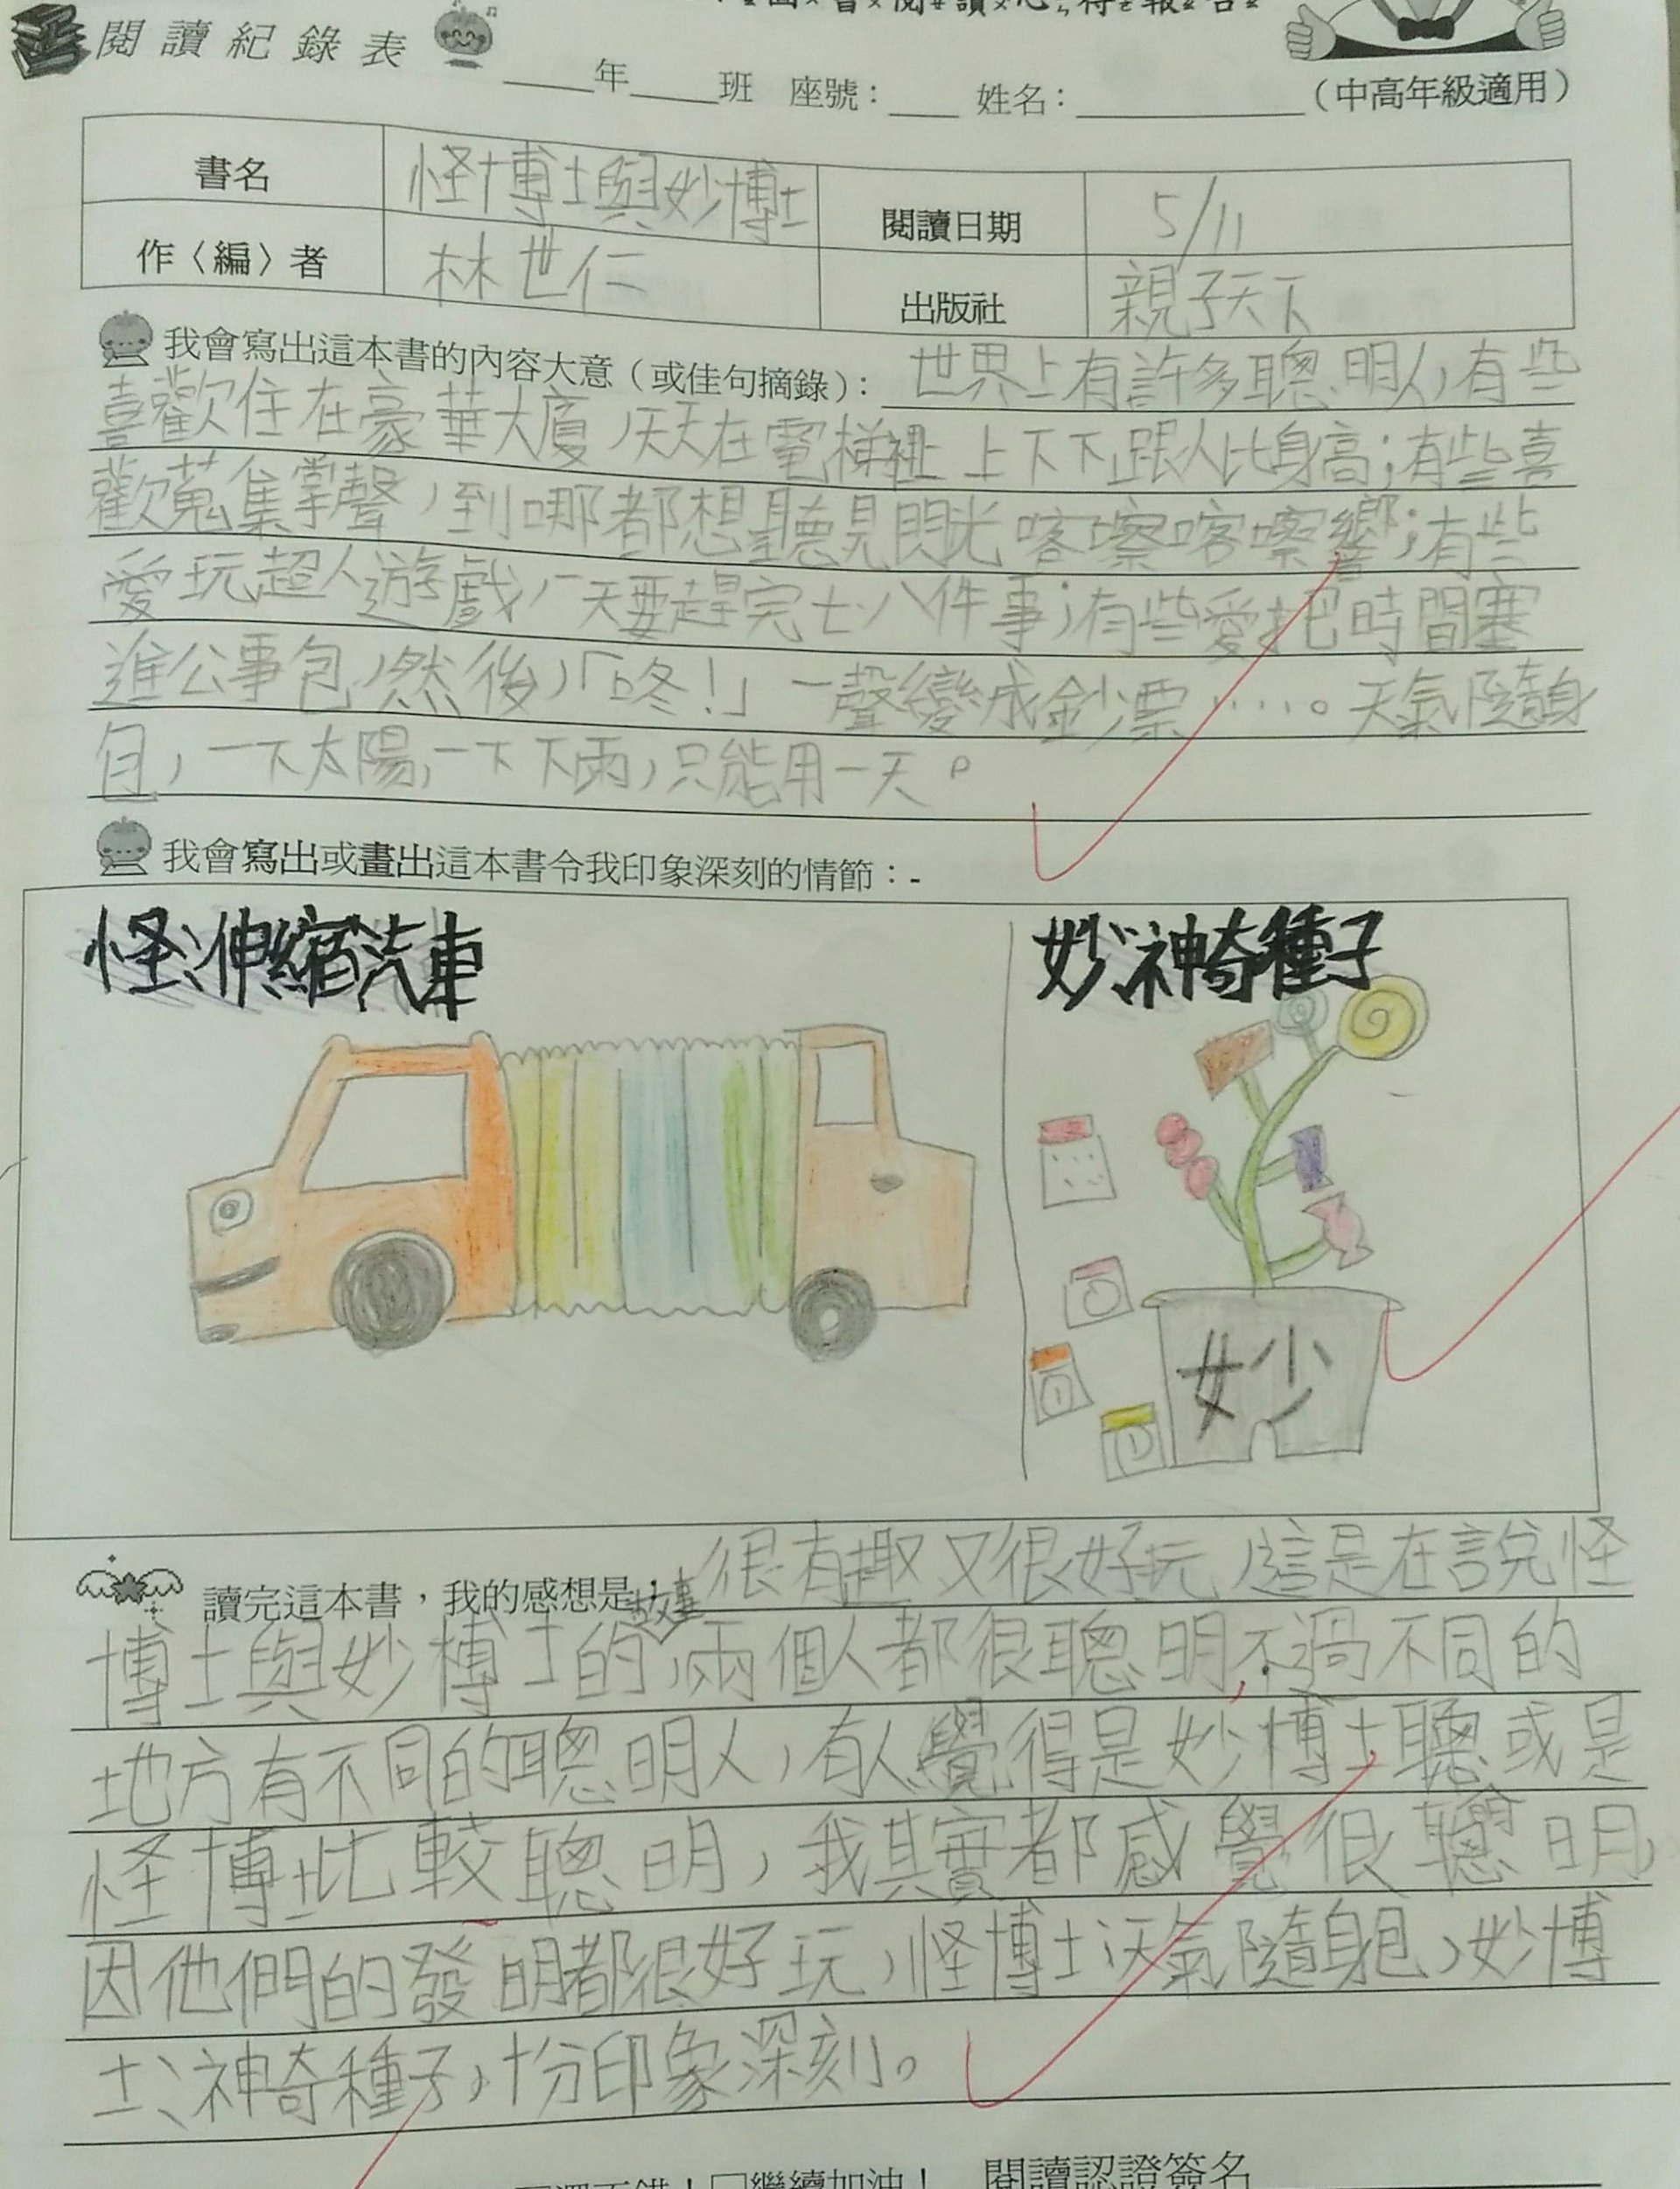 圖書閱讀心得報告
閱讀紀錄表
年 班 座號： 姓名： （中高年級適用）
書名 怪博士與妙博士 閱讀日期 5/11
作〈編〉者 林世仁 出版社 親子天下
我會寫出這本書的內容大意（或佳句摘錄）： 世界上有許多聰明人，有些
喜歡住在豪華大廈，天天在電梯裡上上下下跟人比身高；有些喜
歡蒐集掌聲，到哪都想聽見閃光喀嚓喀嚓響；有些
愛玩超人遊戲，一天要趕完七、八件事；有些愛把時間塞
進公事包，然後，「咚！」一聲變成鈔漂……。天氣隨身
包，一下太陽，一下下雨，只能用一天。
我會寫出或畫出這本書令我印象深刻的情節：-
怪：伸縮汽車
妙：神奇種子
妙
讀完這本書，我的感想是： 很有趣又很好玩，這是在說怪
博士與妙博士的故事，兩個人都很聰明，不過不同的
地方有不同的聰明人，有人覺得是妙博士聰或是
怪博士比較聰明，我其實都感覺很聰明，
因他們的發明都很好玩，怪博士：天氣隨身包，妙博
士：神奇種子，十分印象深刻。
還不錯！□繼續加油！ 閱讀認證簽名